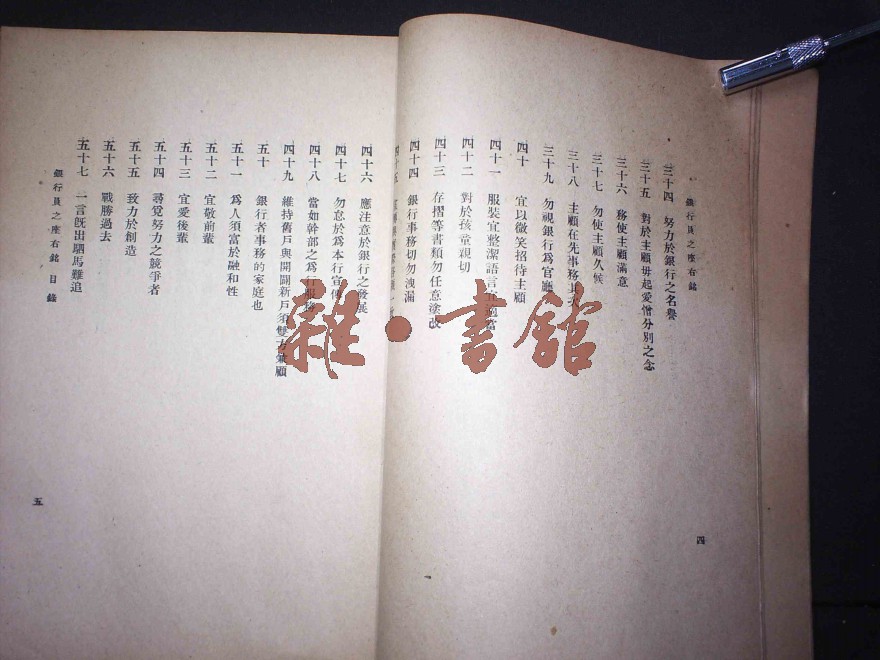 銀行員之座右銘
三十四 努力於銀行之名譽
三十五 對於主顧毋起愛憎分別之念
三十六 務使主顧滿意
三十七 勿使主顧久候
三十八 主顧在先事務其次
三十九 勿視銀行為官廳
四十 宜以微笑招待主顧
四十一 服裝宜整潔語言宜適當
四十二 對於孩童親切
四十三 存摺等書類勿任意塗改
四十四 銀行事務切勿洩漏
四十五
四十六 應注意於銀行之發展
四十七 勿怠於為本行宣傳
四十八 當如幹部之為行服務
四十九 維持舊戶與開闢新戶須雙方兼顧
五十 銀行者事務的家庭也
五十一 為人須富於融和性
五十二 宜敬前輩
五十三 宜愛後輩
五十四 尋覓努力之競爭者
五十五 致力於創造
五十六 戰勝過去
五十七 一言既出駟馬難追
銀行員之座右銘 目錄
四
五
雜·書館